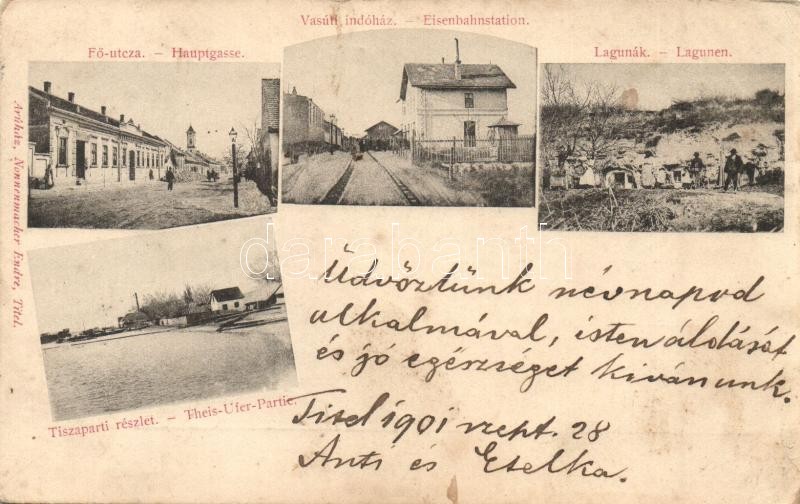 Vasúti indóház. – Eisenbahnstation.
Fő-utcza. – Hauptgasse.
Lagunák. – Lagunen.
Arúház, Nonnenmacher Endre, Titel.
darabanth
Tiszaparti részlet. – Theis-Ufer-Partie.
Üdvöztünk névnapod
alkalmával, isten áldását
és jó egészséget kivánunk.
Titel 1901 szept. 28
Anti és Etelka.